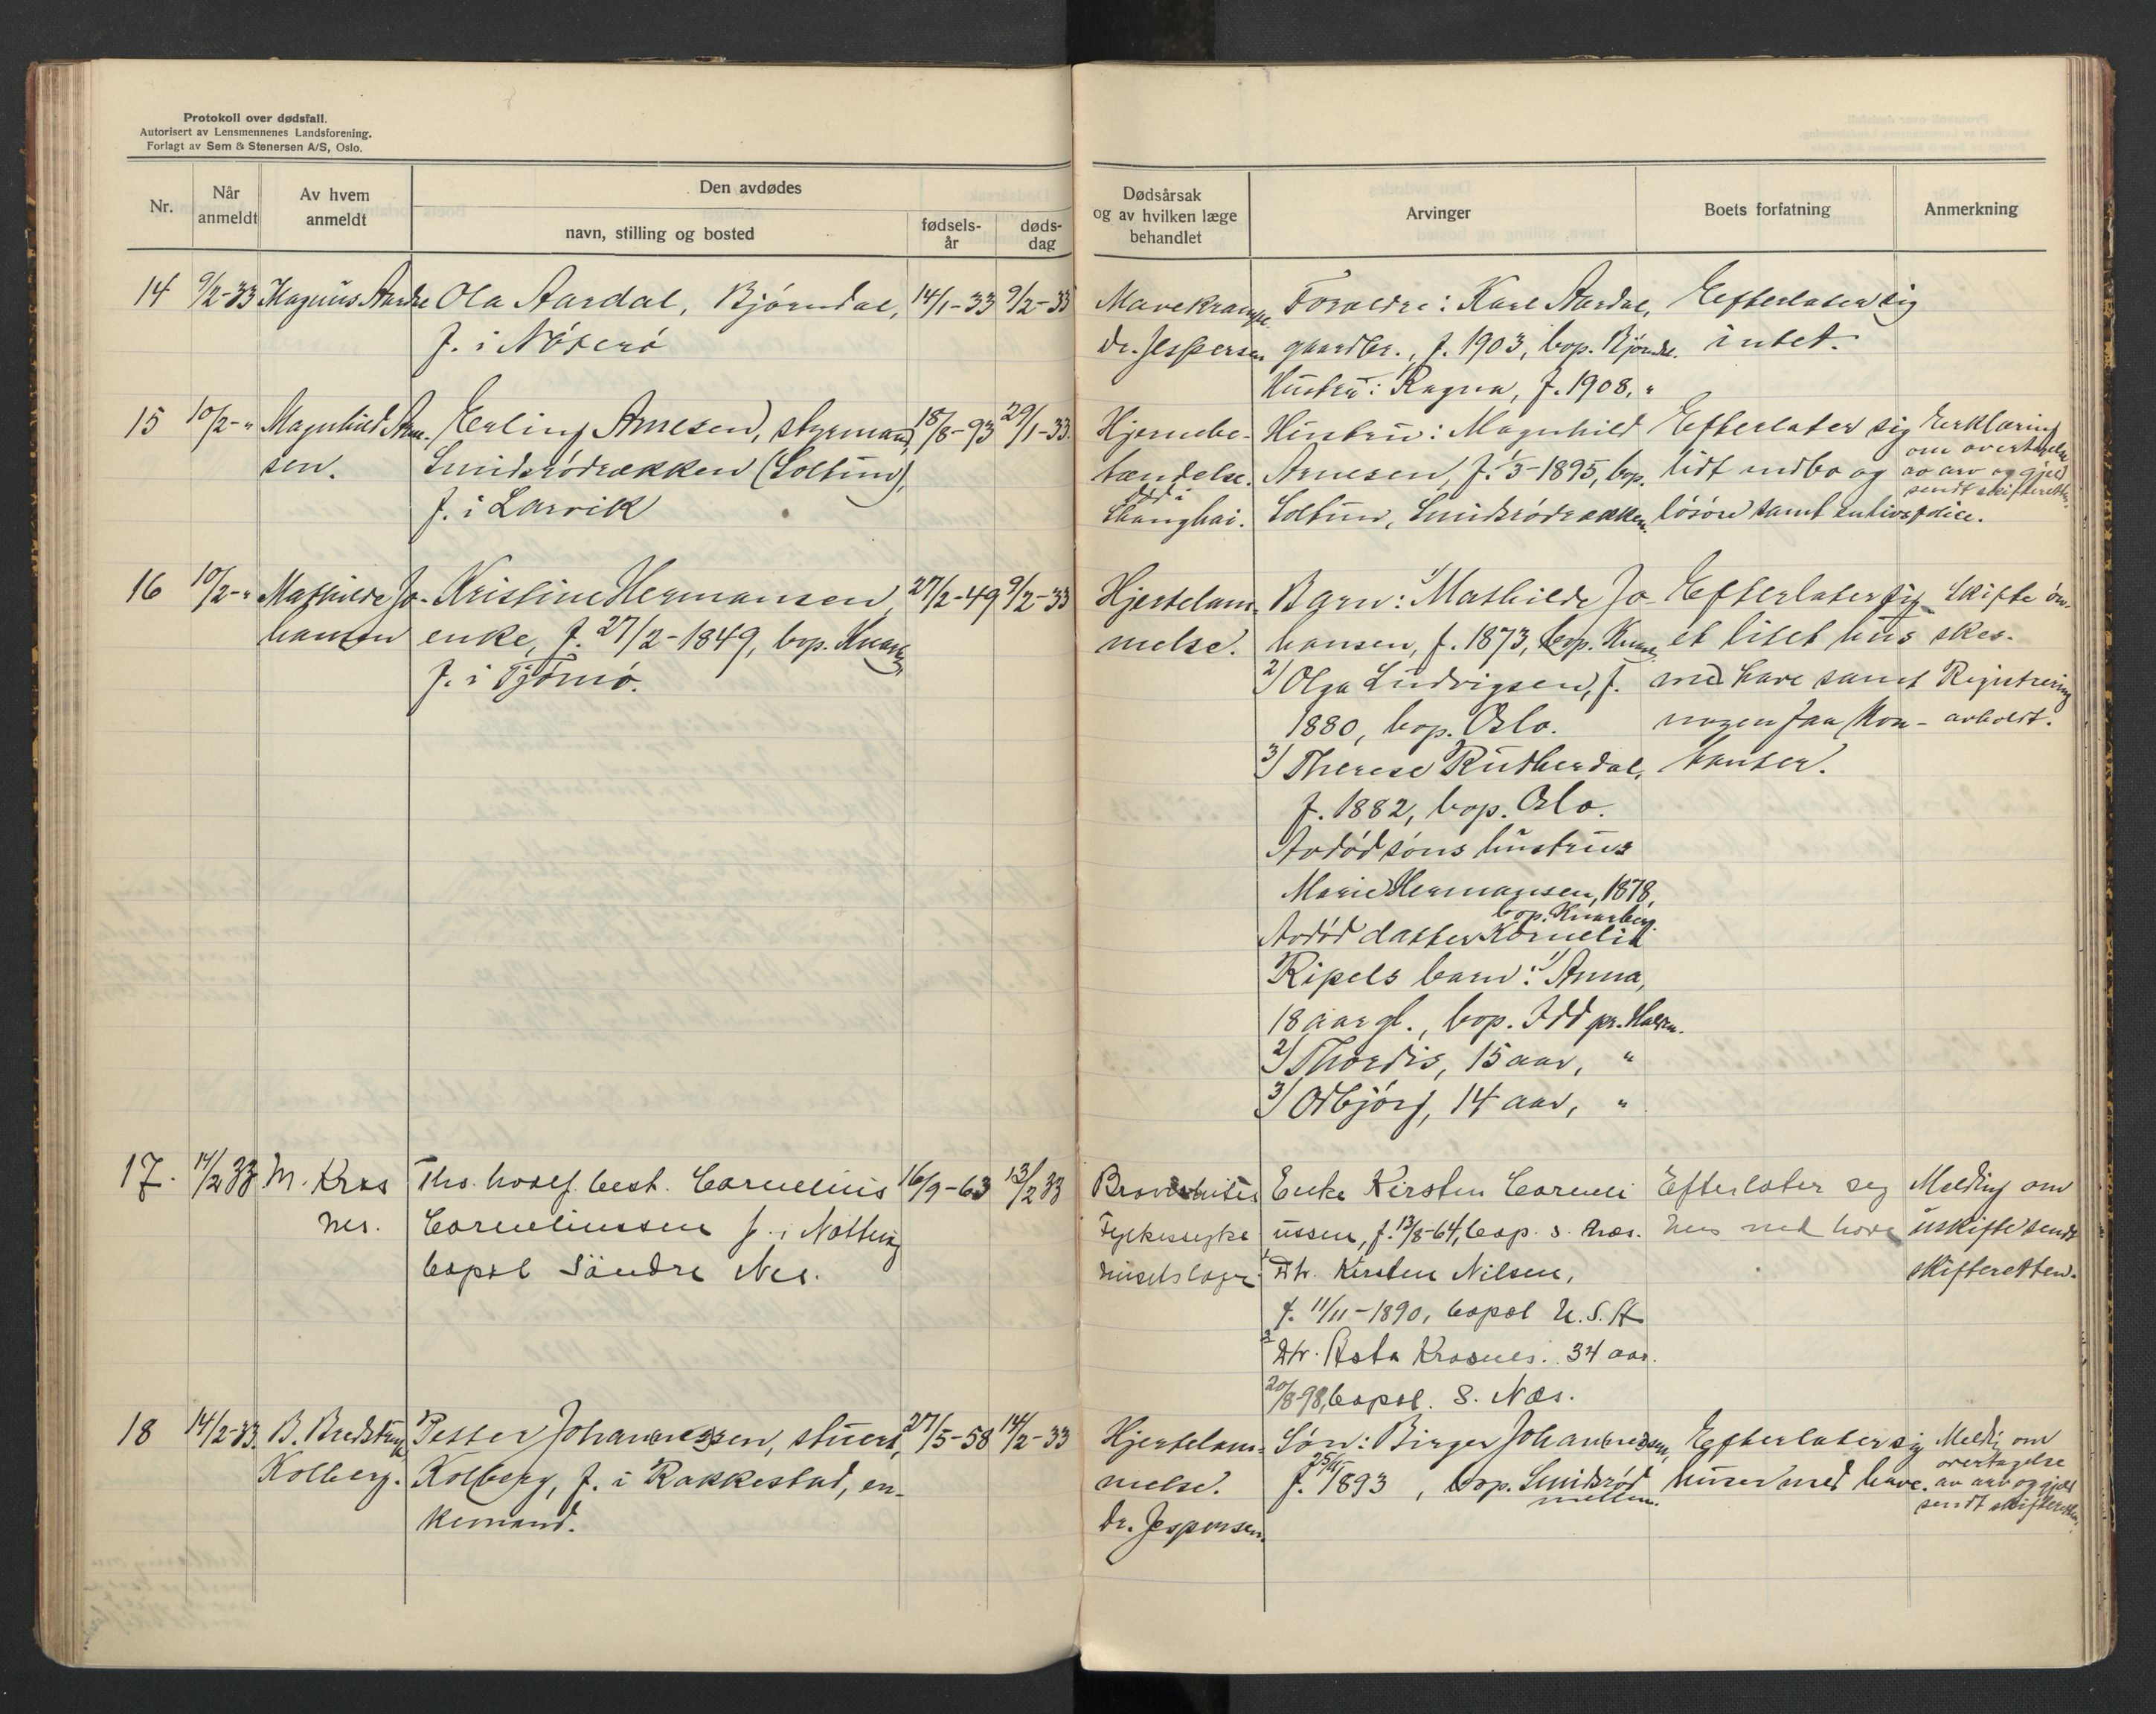 Protokoll over dødsfall.
Autorisert av Lensmennenes Landsforening.
Forlagt av Sem & Stenersen A/S, Oslo.
Nr.
Når
anmeldt
Av hvem
anmeldt
Den avdødes
navn, stilling og bosted
fødsels-
år
døds-
dag
Dødsårsak
og av hvilken læge
behandlet
Arvinger
Boets forfatning
Anmerkning
14 9/2-33 Magnus Ola Aardal, Bjørndal, 14/1-33 9/2-33
f. i Nøterø
Mavekrampe
dr. Jespersen
Foreldre: Karl Aardal,
gaardbr., f. 1903, bop. Bjørndal.
Hustru: Ragna, f. 1908, "
Efterlater sig
intet.
15 10/2-" Magnhild Arne- Erling Arnesen, styrmand, 18/8-93 29/1-33.
sen. Smidsrødrækken (Soltun),
f. i Larvik
Hjernebe-
tændelse.
død i
Shanghai.
Hustru: Magnhild
Arnesen, f. 1/3-1895, bop.
Soltun, Smidsrødrækken.
Efterlater sig
lidt indbo og
løsøre samt en livspolice.
Erklæring
om overtagelse
av arv og gjeld
sendt skifteretten.
16 10/2-" Mathilde Jo- Kristine Hermansen, 27/2-49 9/2-33
hansen enke, f. 27/2-1849, bop.
f. i Tjømø.
Hjertelam-
melse.
Barn: 1/ Mathilde Jo-
hansen, f. 1873, bop.
2/ Olga Ludvigsen, f.
1880, bop. Oslo.
3/ Therese
f. 1882, bop. Oslo.
Avdød søns hustru:
Marie Hermansen, 1878,
bop. Knarberg.
Avdød datter Kornelia
Ripels barn: 1/ Anna,
18 aar gl., bop. Idd pr. Halden.
2/ Thordis, 15 aar, "
3/ Odbjørg, 14 aar, "
Efterlater sig
et litet hus
med have samt
nogen faa kon-
tanter.
Skifte øn-
skes.
Registrering
avholdt.
17. 14/2 33 M. Kros Ths. best. Cornelius 16/9-63 13/2 33
nes. Corneliussen f. i Nøtterøy
bopæl Söndre Nes.
Fylkessyke
husets læge.
Enke Kirsten Corneli
ussen, f. 13/8-64, bop. S. Næs.
1 Dtr. Kirsten Nilsen,
f. 11/11-1890, bopæl U.S.A
2 Dtr. Asta Krosnes. 34 aar.
20/8-98, bopæl. S. Næs.
Efterlater seg
hus med have
Melding om
uskifte sendt
skifteretten.
18 14/2-33. B. Petter Johannessen, stuert, 27/5-58 14/2-33
Kolberg. Kolberg, f. i Rakkestad, en-
kemand.
Hjertelam-
melse.
Dr. Jespersen.
Søn: Birger Johannessen,
f. 1893, bop. Smidsrød
mellem.
Efterlater sig
huser med have.
Meldig om
overtagelse
av arv og gjeld
sendt skifteretten.